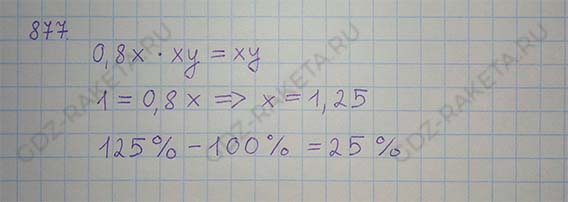 877.
0,8x · xy = xy
1 = 0,8x => x = 1,25
125% - 100% = 25%
GDZ-RAKETA.RU
GDZ-RAKETA.RU
GDZ-RAKETA.RU
GDZ-RAKETA.RU